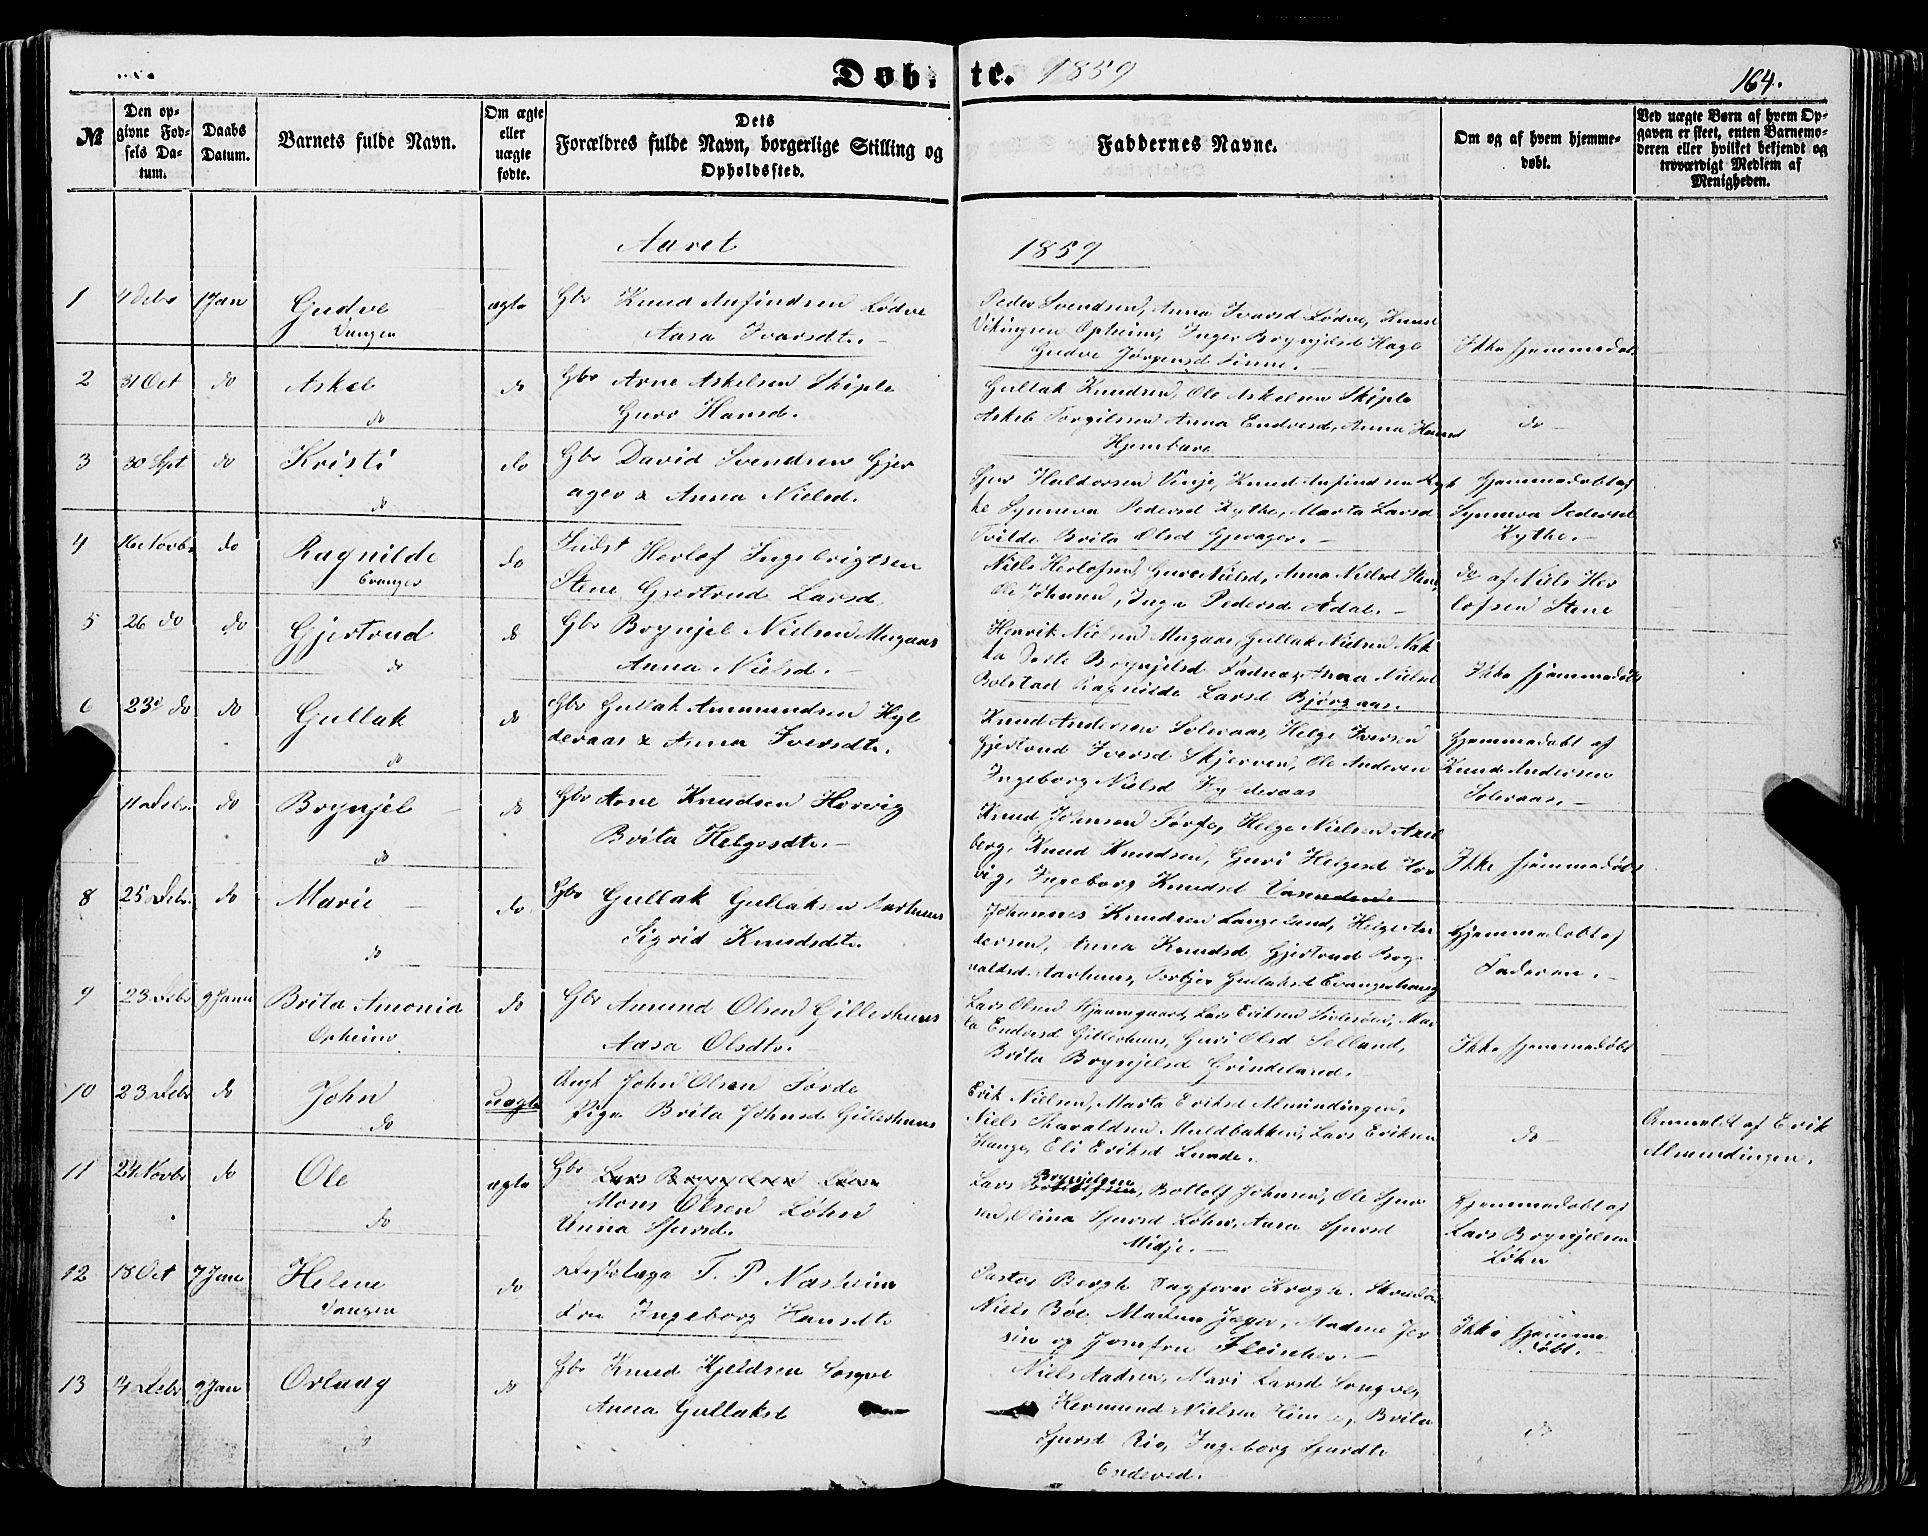 Døb
te. 1859
164.
№
Den op-
givne Fød-
sels Da-
tum.
Daabs
Datum.
Barnets fulde Navn.
Om ægte
eller
uægte
fødte.
Dets
Forældres fulde Navn, borgerlige Stilling og
Opholdssted.
Faddernes Navne.
Om og af hvem hjemme-
døbt.
Ved uægte Børn af hvem Op-
gaven er skeet, enten Barnemo-
deren eller hvilket bekjendt og
troværdigt Medlem af
Menigheden.
Aaret
1859
1 4 Debr 1 Jan Gudve ægte Gbr Knud Anfindsen Lødve
Vangen Aasa Ivarsdtr.
Peder Svendsen, Anna Ivarsd Lødve, Knud
Vikingsen Opheim, Inger Brynjelsd Hagl
Gudve Jørgensd Finne.
Ikke hjemmedøbt
2 31 Oct do Askel do Gbr Arne Askelsen Skiple
do Guro Hansd.
Gullak Knudsen, Ole Askelsen Skiple
Askel Torgilssen Anna Endresd, Anna Hansd
do
3 30 Spt do Kristi do Gbr David Svendsen Gjer
do ager & Anna Nielsd.
Sjur Haldorsen Vinje, Knud Anfindsen Kyt
he Synneva Pedersd Kythe, Marta Larsd
Tvilde Brita Olsd Gjerager.
Hjemmedøbt af
Synneva Pedersd
Kythe.
4 16 Novbr do Ragnilde do Indst Herlof Ingebrigtsen
Evanger Stene Gjertrud Larsd.
Niels Herlofsen, Guro Nielsd, Anna Nielsd Stene,
Ole Johnsen, Inga Pedersd Adal.
do af Niels Her
lofsen Stene
5 26 do do Gjertrud do Gbr Brynjel Nielsen Mugaas
do Anna Nielsd.
Henrik Nielsen Mugaas, Gullak Nielsen Nak
Brynjelsd Anna Nielsd
Bolstad Ragnilde Larsd Bjørgaas.
Ikke hjemmedøbt
6 23 do do Gullak do Gbr Gullak Ammundsen Hyl
do deraas & Anna Iversdtr.
Knud Andersen Soleraas, Helge Iversen
Gjertrud Iversd Skjerven, Ole Andersen
Ingeborg Nielsd Hylderaas
Hjemmedøbt af
Knud Andersen
Soleraas.
11 Debr do Brynjel do Gbr Arne Knudsen Horvig
do Brita Helgesdtr.
Knud Johnsen Førse, Helge Nielsen
berg, Knud Knudsen, Guri Helgesd Hor
vig, Ingeborg Knudsd Vasenden
Ikke hjemmedøbt
8 25 Debr do Marie do Gbr Gullak Gullaksen Aarhuus
do Sigrid Knudsdtr.
Johannes Knudsen Langeland, Helge An
dersen, Anna Knudsd Gjertrud Rog
valdsd Aarhuus, Gullaksd
Hjemmedøbt af
Faderen.
9 23 Debr 9 Janu Brita Amonia do Gbr Amund Olsen Gillerhuus
Opheim Aasa Olsdtr.
Lars Olsen Hjemegaard, Lars Eriksen Mar
ta Endresd Gillerhuus, Guri Olsd Selland,
Brita Brynjelsd Grindeland.
Ikke hjemmedøbt
10 23 Debr do John uægte Ungk John Olsen Førde
do Pige Brita Johnsd Gillerhuus
Erik Nielsen, Marta Eriksd Almindingen,
Niels Muldbakken, Lars Eriksen
Hauge, Eli Eriksd Lunde.
do
Anmeldt af Erik
Almindingen.
11 24 Novbr do Ole ægte Gbr Lars Brynjelsen Løhn
do Mons Olsen Løhn
Anna Sjursd.
Lars Brynjelsen, Bottolf Johnsen, Ole Sjur
sen, Olina Sjursd Løhn, Aasa Sjursd
Midje.
Hjemmedøbt af
Lars Brynjelsen
Løhn
12 18 Oct 7 Jan Helene do Distslæge T. P Næsheim
Vangen Fru Ingeborg Hansdtr
Pastor Bergh Jagfører Krogh,
Niels Boe Madme Jæger, Madme Jer
sin og Jomfru Fleischer.
Ikke hjemme
døbt.
13 14 Debr 9 Jan Orlaug do Gbr Knud Kjeldsen Songve
do Anna Gullaksd
Niels Aadsen, Mari Larsd Songve,
Hermund Nielsen Himle, Brita
Sjursd Rio, Ingeborg Sjurdtr
do